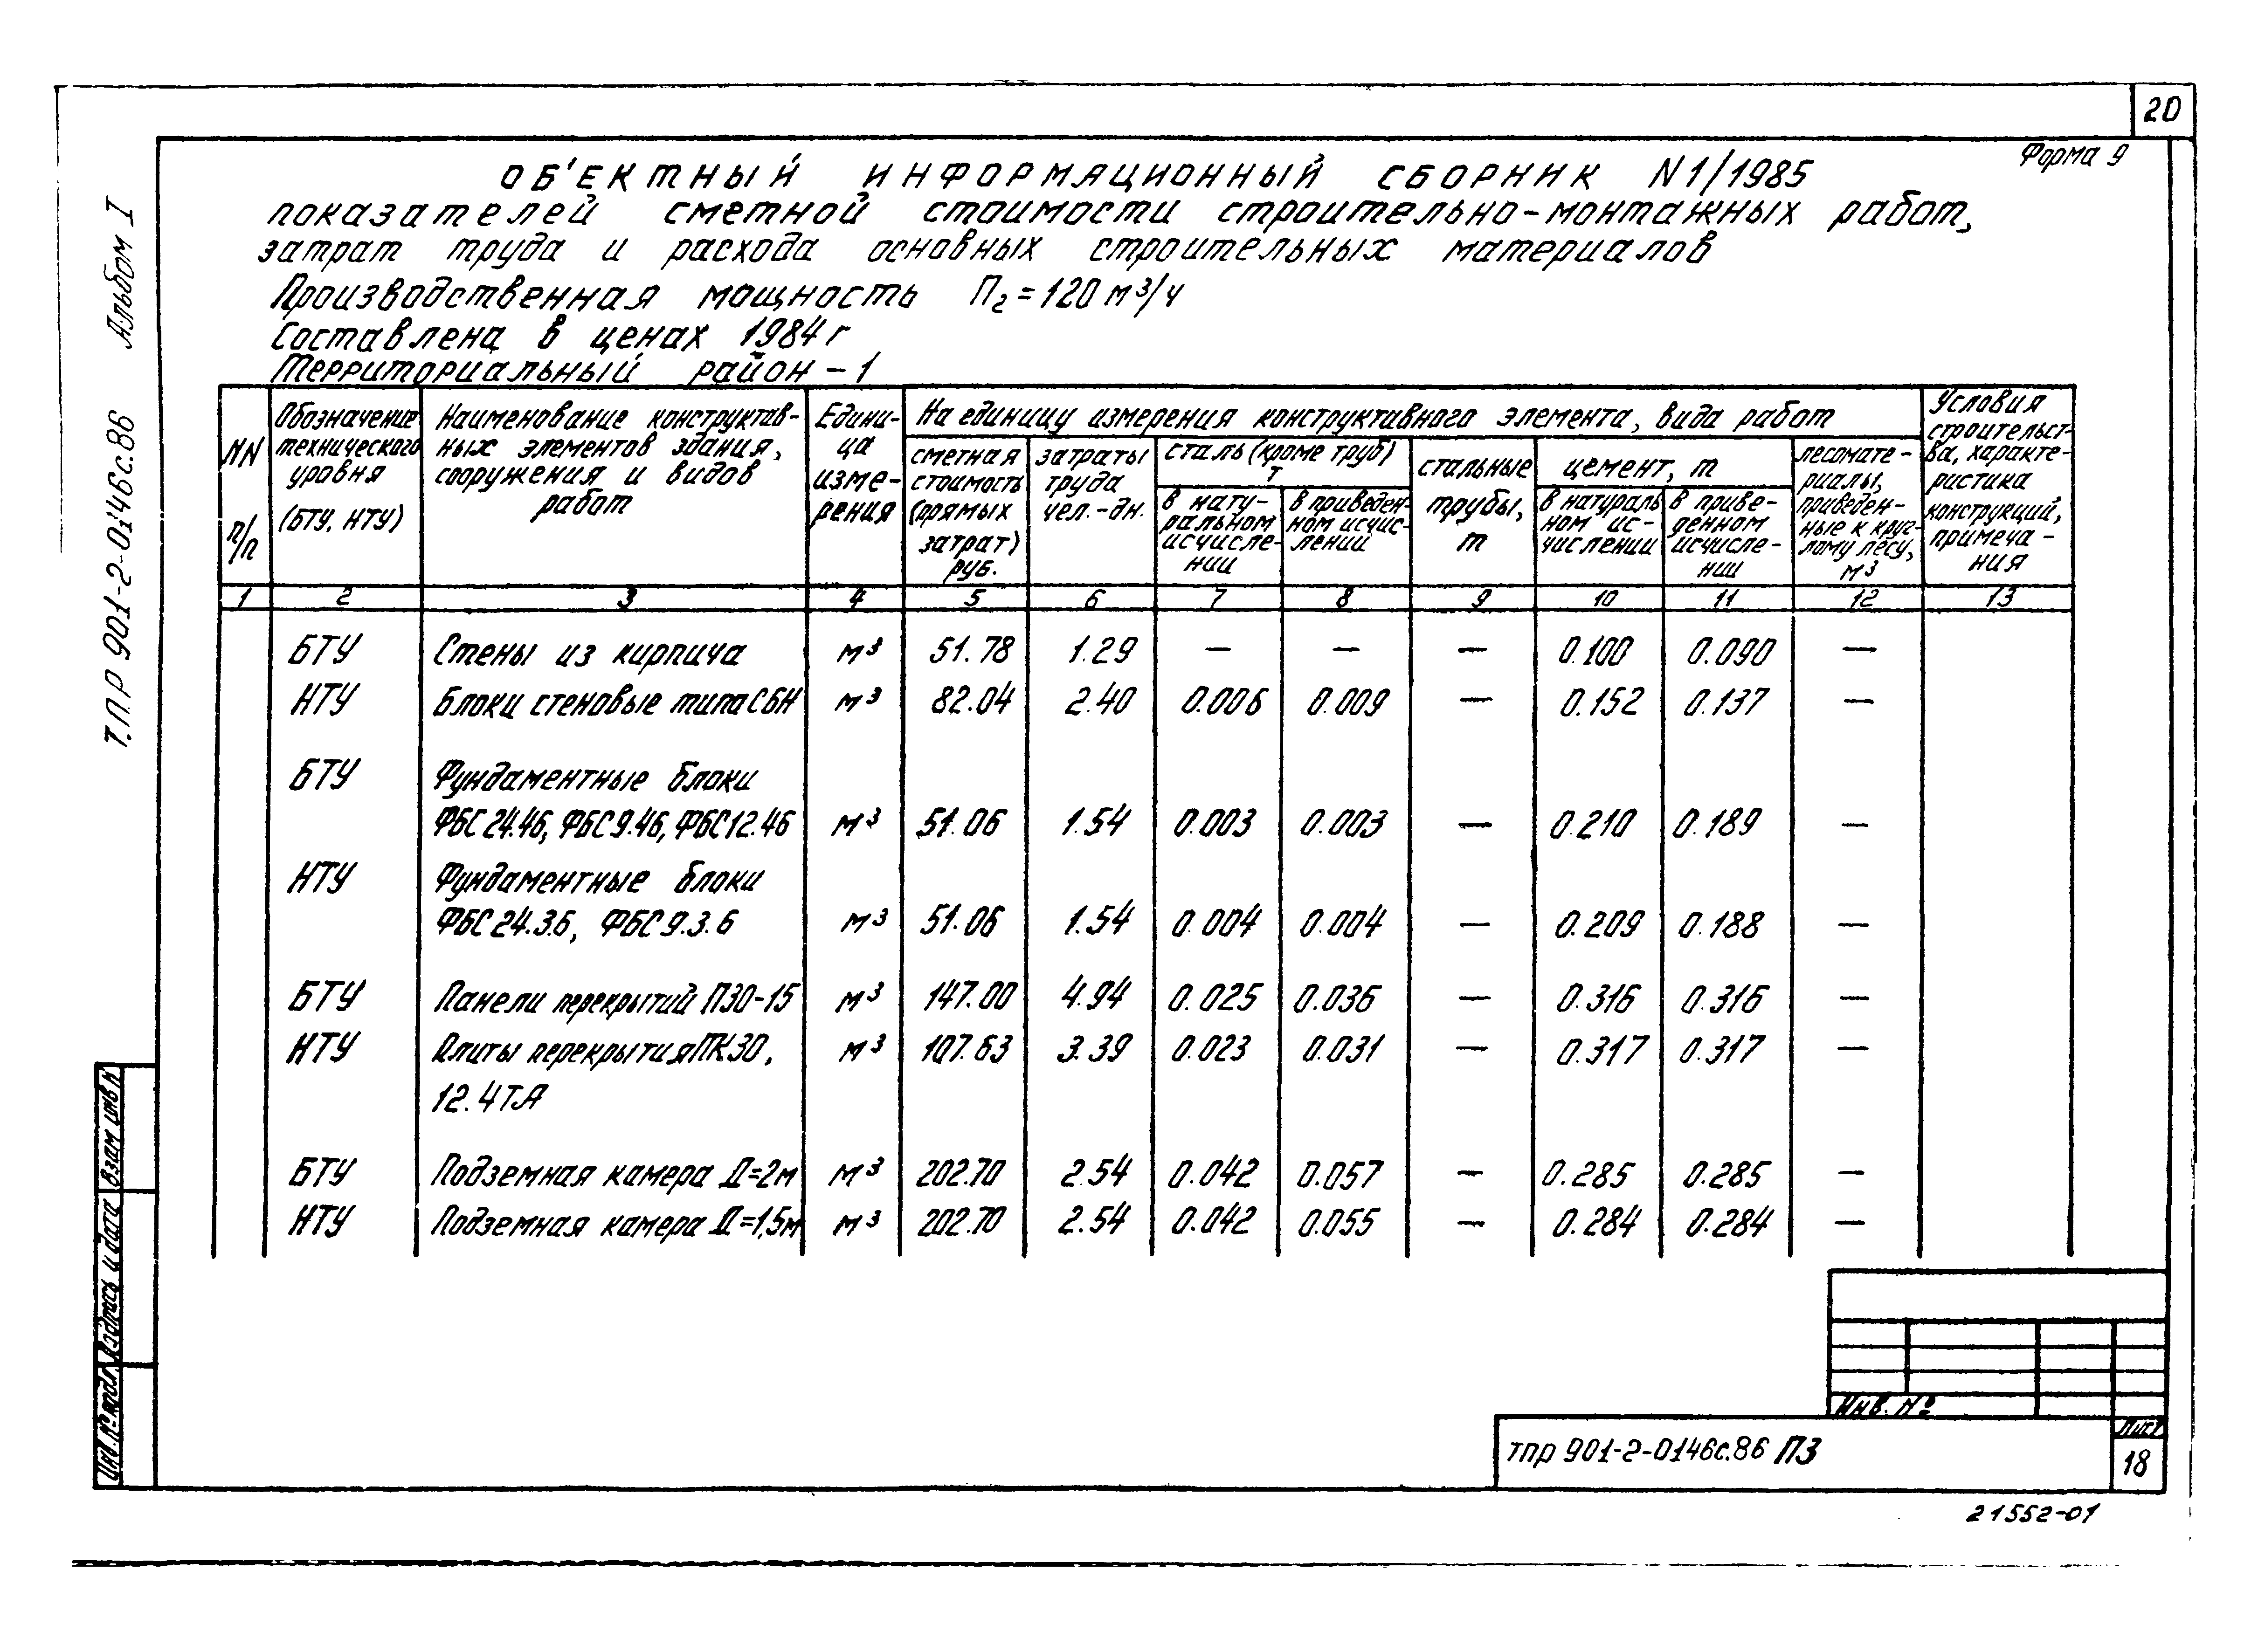 20
Форма 9
ОБ'ЕКТНЫЙ ИНФОРМАЦИОННЫЙ СБОРНИК N1/1985
показателей сметной стоимости строительно-монтажных работ,
затрат труда и расхода основных строительных материалов
Производственная мощность Пг = 120 м³/ч
Составлена в ценах 1984 г
Территориальный район - 1
Альбом I
Т.П.Р 901-2-0146с.86
NN п/п
Обозначение технического уровня (БТУ, НТУ)
Наименование конструктив-
ных элементов здания,
сооружения и видов
работ
Едини-
ца
изме-
рения
На единицу измерения конструктивного элемента, вида работ
сметная стоимость (прямых затрат) руб.
затраты труда чел.-дн.
сталь (кроме труб) т
в нату-
ральном
исчисле-
нии
в приведен-
ном исчис-
лении
стальные трубы, т
цемент, т
в натураль
ном ис-
числении
в приве-
денном
исчисле-
нии
лесомате-
риалы,
приведен-
ные к круг-
лому лесу,
м³
Условия
строительст-
ва, характе-
ристика
конструкций,
примеча-
ния
1 2 3 4 5 6 7 8 9 10 11 12 13
БТУ Стены из кирпича м³ 51.78 1.29 — — — 0.100 0.090 —
НТУ Блоки стеновые типа СБН м³ 82.04 2.40 0.006 0.009 — 0.152 0.137 —
БТУ Фундаментные блоки
ФБС 24.46, ФБС 9.46, ФБС 12.46 м³ 51.06 1.54 0.003 0.003 — 0.210 0.189 —
НТУ Фундаментные блоки
ФБС 24.3.6, ФБС 9.3.6 м³ 51.06 1.54 0.004 0.004 — 0.209 0.188 —
БТУ Панели перекрытий П30-15 м³ 147.00 4.94 0.025 0.036 — 0.316 0.316 —
НТУ Плиты перекрытия ПК30, м³ 107.63 3.39 0.023 0.031 — 0.317 0.317 —
12.4Т.А
БТУ Подземная камера Д=2м м³ 202.70 2.54 0.042 0.057 — 0.285 0.285 —
НТУ Подземная камера Д=1,5м м³ 202.70 2.54 0.042 0.055 — 0.284 0.284 —
Взам инв N
Подпись и дата
Инв. № подл.
Инв. №
тпр 901-2-0146с.86 ПЗ
Лист
18
21552-01